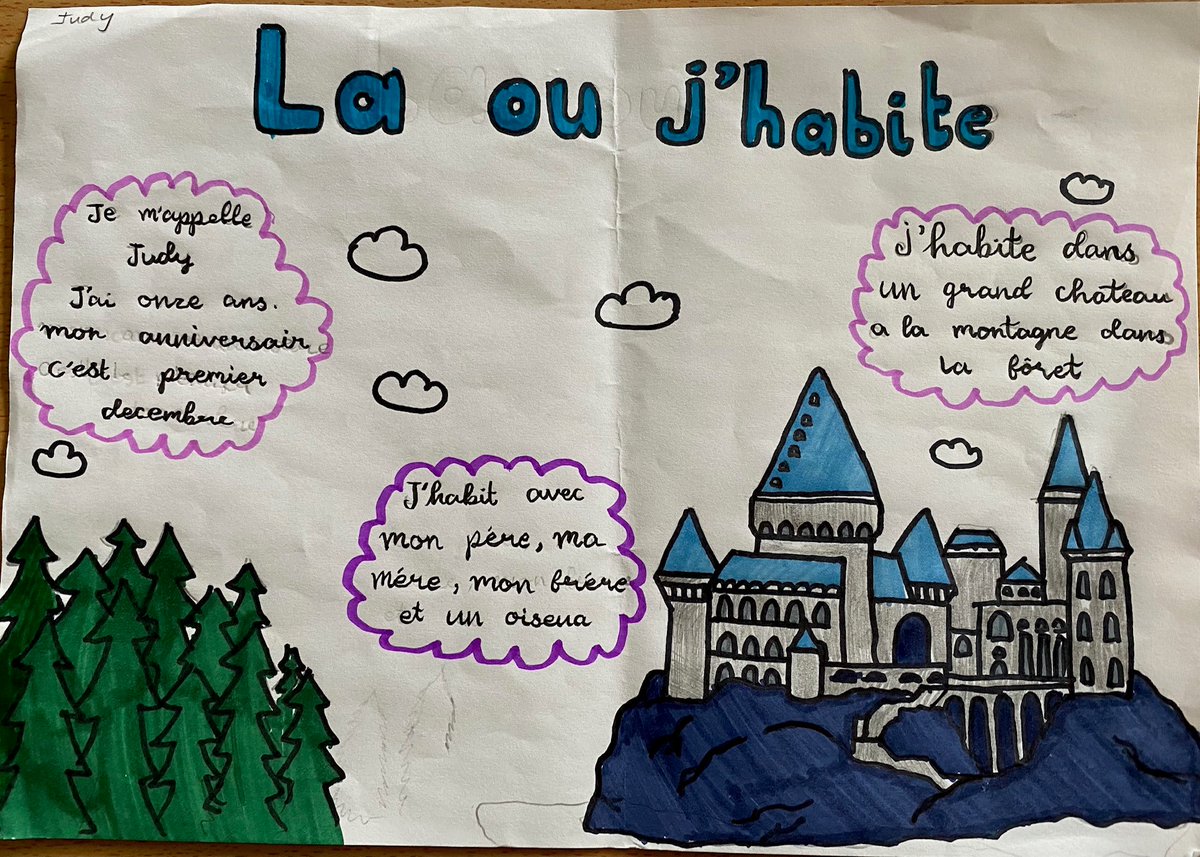 Judy
La ou j'habite
Je m'appelle
Judy
J'ai onze ans.
mon anniversair
c'est premier
decembre
J'habit avec
mon pére, ma
mére, mon frére
et un oiseua
j'habite dans
un grand chateau
a la montagne dans
la fôret